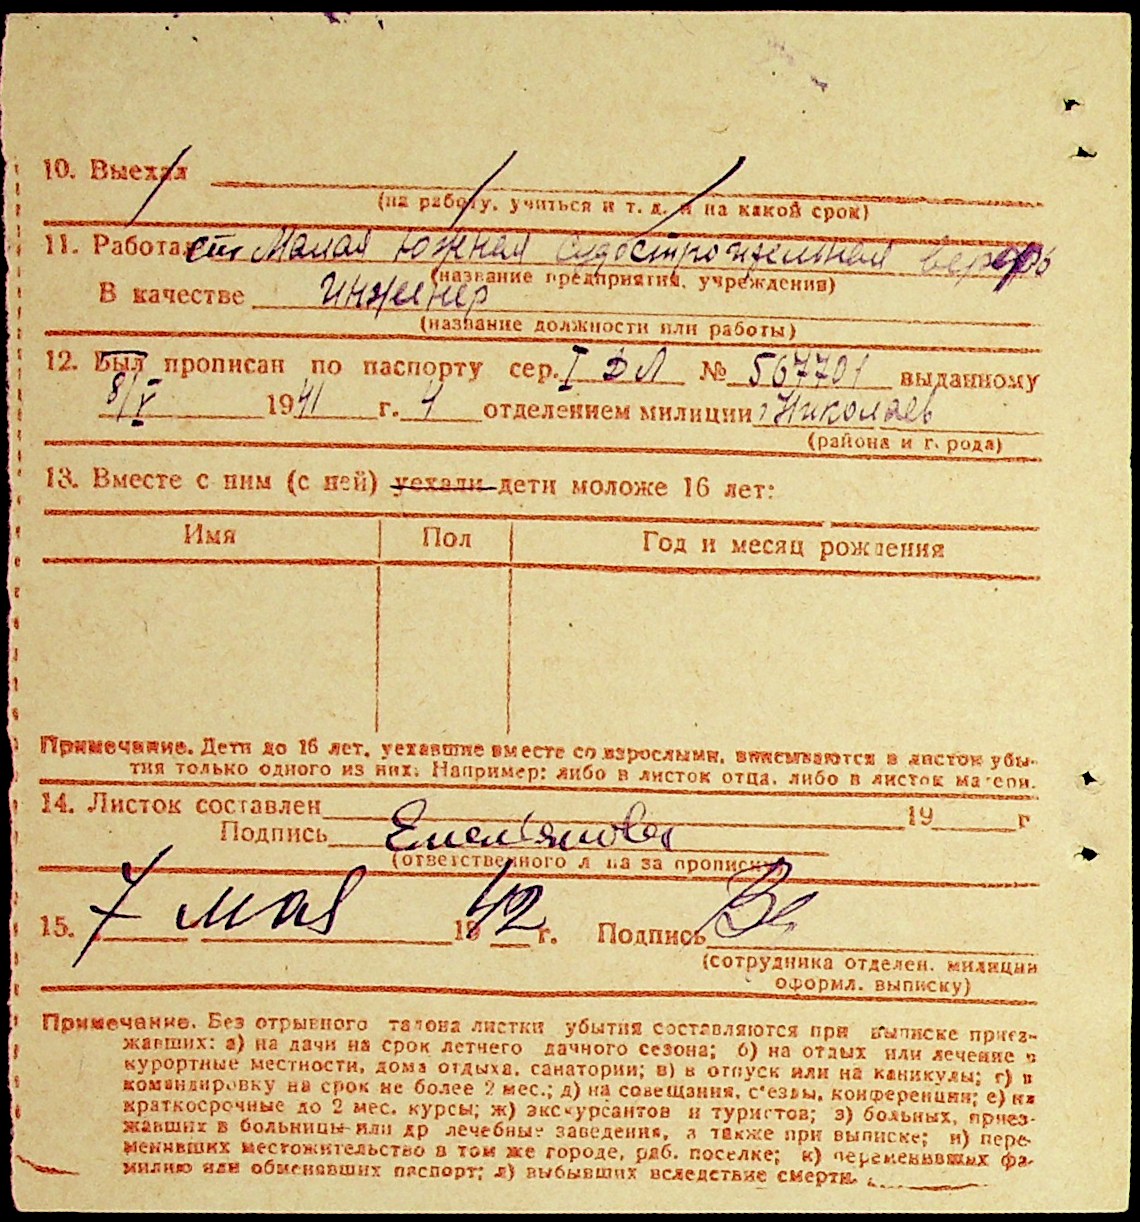 10. Выехал
(на работу, учиться и т. д. и на какой срок)
11. Работал ст Малая Южная Судостроительная верфь
(название предприятия, учреждения)
В качестве Инженер
(название должности или работы)
12. Был прописан по паспорту сер. I ДЛ № 567701 выданному
8/V 1941 г. 4 отделением милиции г Николаев
(района и города)
13. Вместе с ним (с ней) уехали дети моложе 16 лет:
Имя Пол Год и месяц рождения
Примечание. Дети до 16 лет, уехавшие вместе со взрослыми, вписываются в листок убы-
тия только одного из них. Например: либо в листок отца, либо в листок матери.
14. Листок составлен 19 г
Подпись Емельянова
(ответственного лица за прописку)
15. 7 мая 1942 г. Подпись
(сотрудника отделен. милиции
оформл. выписку)
Примечание. Без отрывного талона листки убытия составляются при выписке приез-
жавших: а) на дачи на срок летнего дачного сезона; б) на отдых или лечение в
курортные местности, дома отдыха, санатории; в) в отпуск или на каникулы; г) в
командировку на срок не более 2 мес.; д) на совещания, с'езды, конференции; е) на
краткосрочные до 2 мес. курсы; ж) экскурсантов и туристов; з) больных, приез-
жавших в больницы или др лечебные заведения, а также при выписке; и) пере-
менивших местожительство в том же городе, раб. поселке; к) переменивших фа-
милию или обменявших паспорт; л) выбывших вследствие смерти.